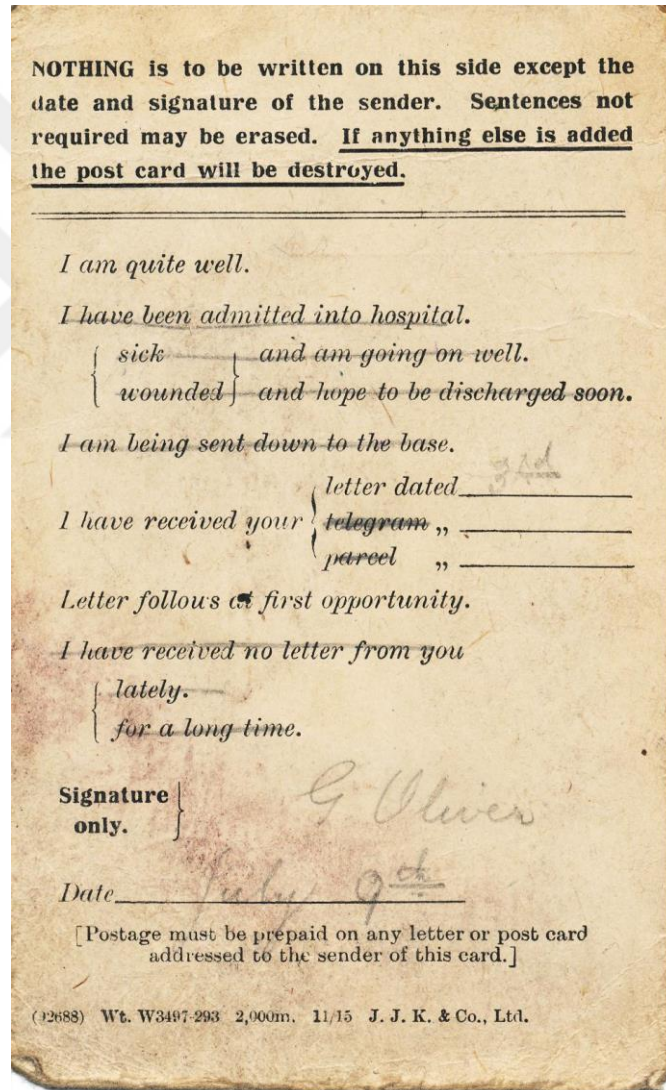 NOTHING is to be written on this side except the
date and signature of the sender. Sentences not
required may be erased. If anything else is added
the post card will be destroyed.
I am quite well.
I have been admitted into hospital.
sick and am going on well.
wounded and hope to be discharged soon.
I am being sent down to the base.
letter dated 3rd
I have received your telegram „
parcel „
Letter follows at first opportunity.
I have received no letter from you
lately.
for a long time.
Signature
only. G Oliver
Date July 9th
[Postage must be prepaid on any letter or post card
addressed to the sender of this card.]
Wt. W3497-293 2,000m. 11/15 J. J. K. & Co., Ltd.